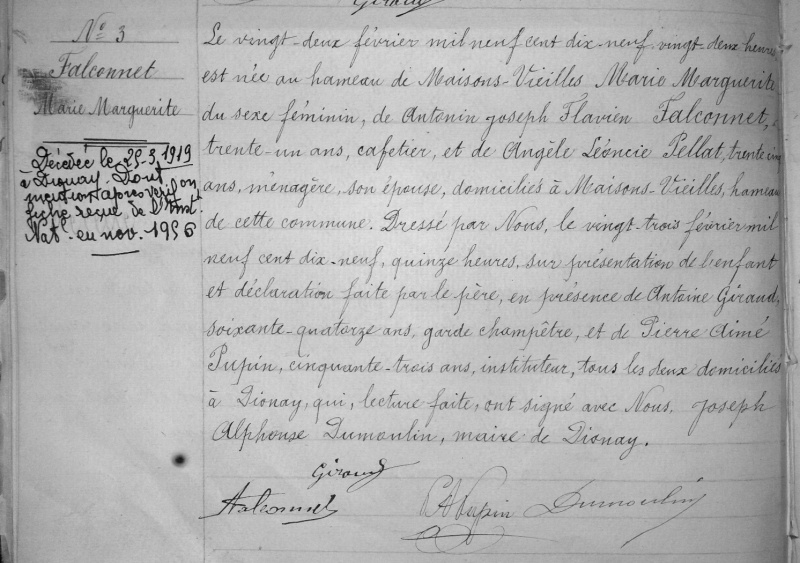 Giraud
N° 3
Falconnet
Marie Marguerite
Décédée le 25.3.1919
à Dionay. Dont
mention après vérif on
fiche reçue de l'Inst.
Nat. en nov. 1956
Le vingt-deux février mil neuf cent dix-neuf vingt-deux heures
est née au hameau de Maisons-Vieilles Marie Marguerite
du sexe féminin, de Antonin Joseph Flavien Falconnet,
trente-un ans, cafetier, et de Angèle Léoncie Pellat, trente cinq
ans, ménagère, son épouse, domiciliés à Maisons-Vieilles, hameau
de cette commune. Dressé par Nous, le vingt-trois février mil
neuf cent dix-neuf, quinze heures, sur présentation de l'enfant
et déclaration faite par le père, en présence de Antoine Giraud,
soixante-quatorze ans, garde champêtre, et de Pierre Aimé
Pupin, cinquante-trois ans, instituteur, tous les deux domiciliés
à Dionay, qui, lecture faite, ont signé avec Nous. Joseph
Alphonse Dumoulin, maire de Dionay.
Giraud
Falconnet PA Pupin Dumoulin